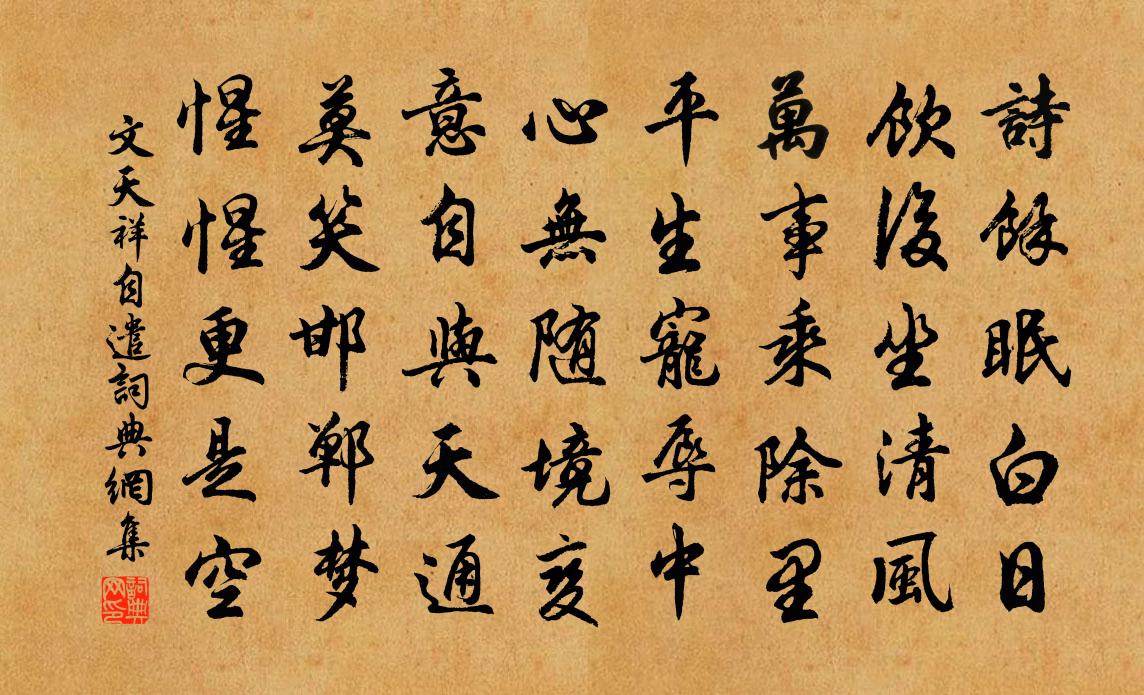 詩餘眠白日
飲後坐清風
萬事乘除里
平生寵辱中
心無随境変
意自與天通
莫笑邯鄲梦
惺惺更是空
文天祥自遣詞典網集
詞典网印